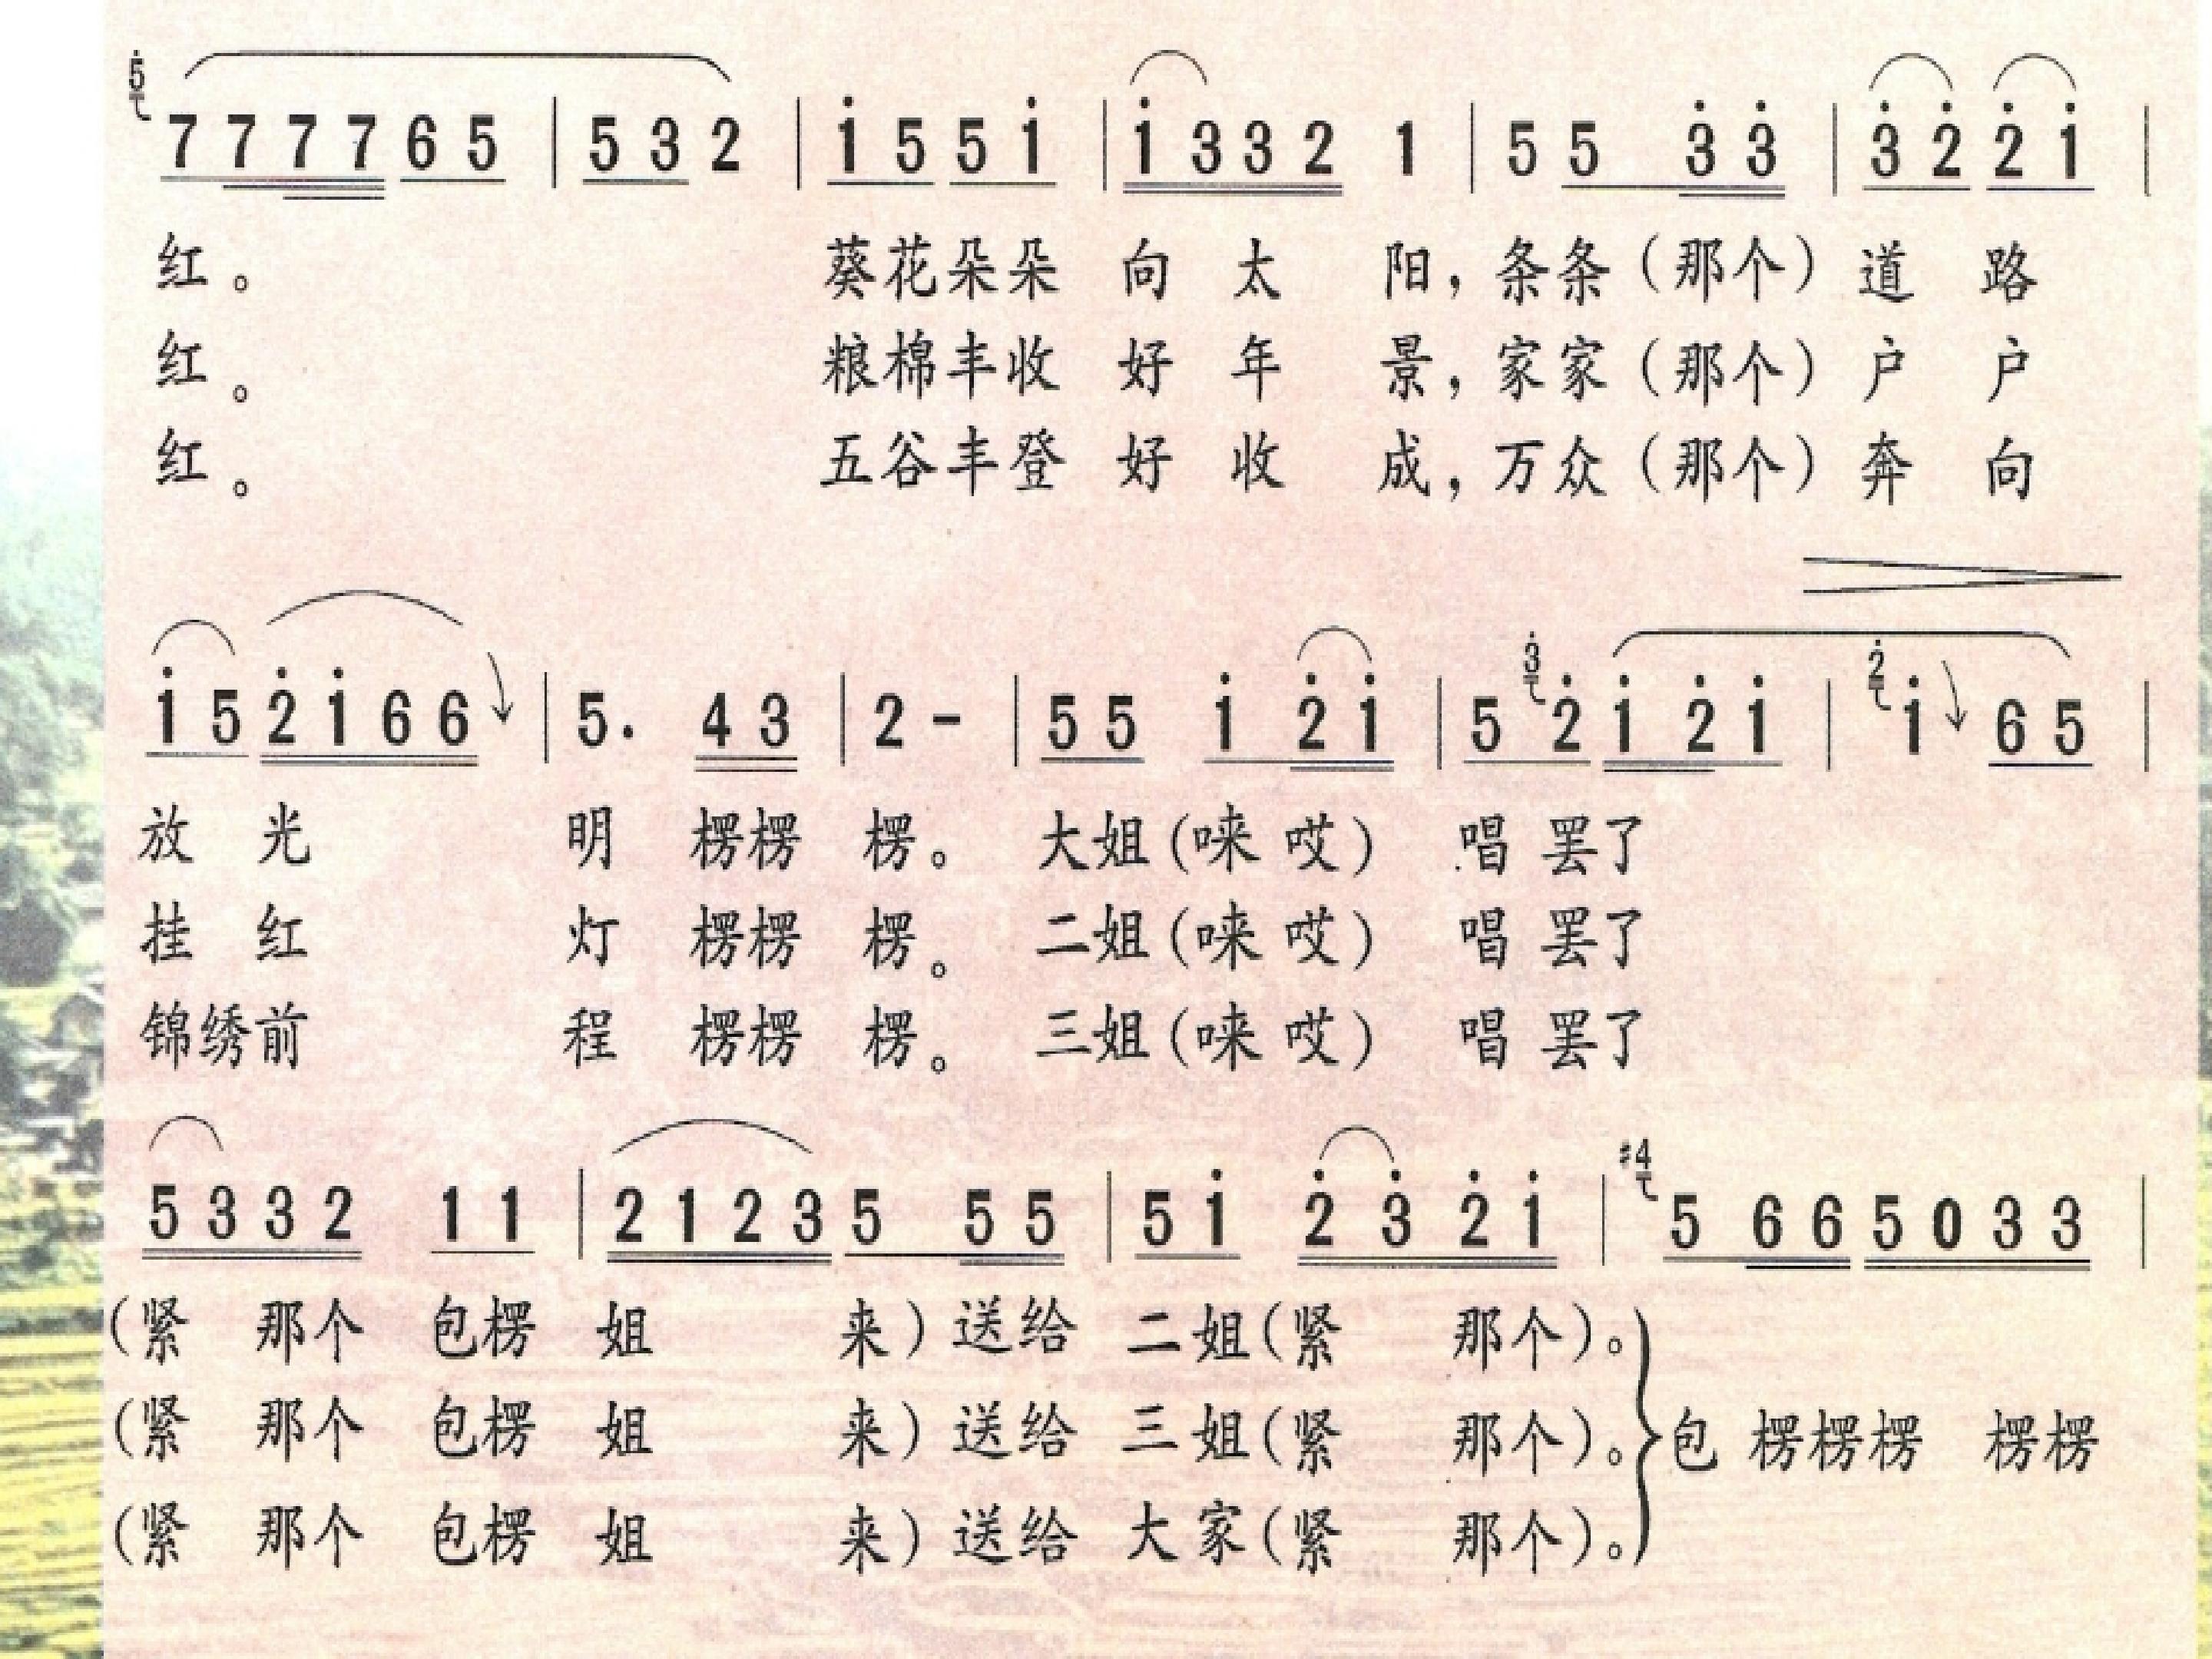 5 7 7 7 7 6 5 | 5 3 2 | i 5 5 i | i 3 3 2 1 | 5 5 3̇ 3̇ | 3̇ 2̇ 2̇ i |
红。 葵花朵朵 向 太 阳，条条（那个）道 路
红。 粮棉丰收 好 年 景，家家（那个）户 户
红。 五谷丰登 好 收 成，万众（那个）奔 向
i 5 2̇ i 6 6 | 5. 4 3 | 2 - | 5 5 i 2̇ i | 5 3̇ 2̇ i 2̇ i | 2̇ i 6 5 |
放 光 明 楞楞 楞。 大姐（唻 哎） 唱 罢了
挂 红 灯 楞楞 楞。 二姐（唻 哎） 唱 罢了
锦绣前 程 楞楞 楞。 三姐（唻 哎） 唱 罢了
5 3 3 2 1 1 | 2 1 2 3 5 5 5 | 5 i 2̇ 3̇ 2̇ i | #4 5 6 6 5 0 3 3 |
（紧 那个 包楞 姐 来）送给 二姐（紧 那个）。
（紧 那个 包楞 姐 来）送给 三姐（紧 那个）。包 楞楞楞 楞楞
（紧 那个 包楞 姐 来）送给 大家（紧 那个）。